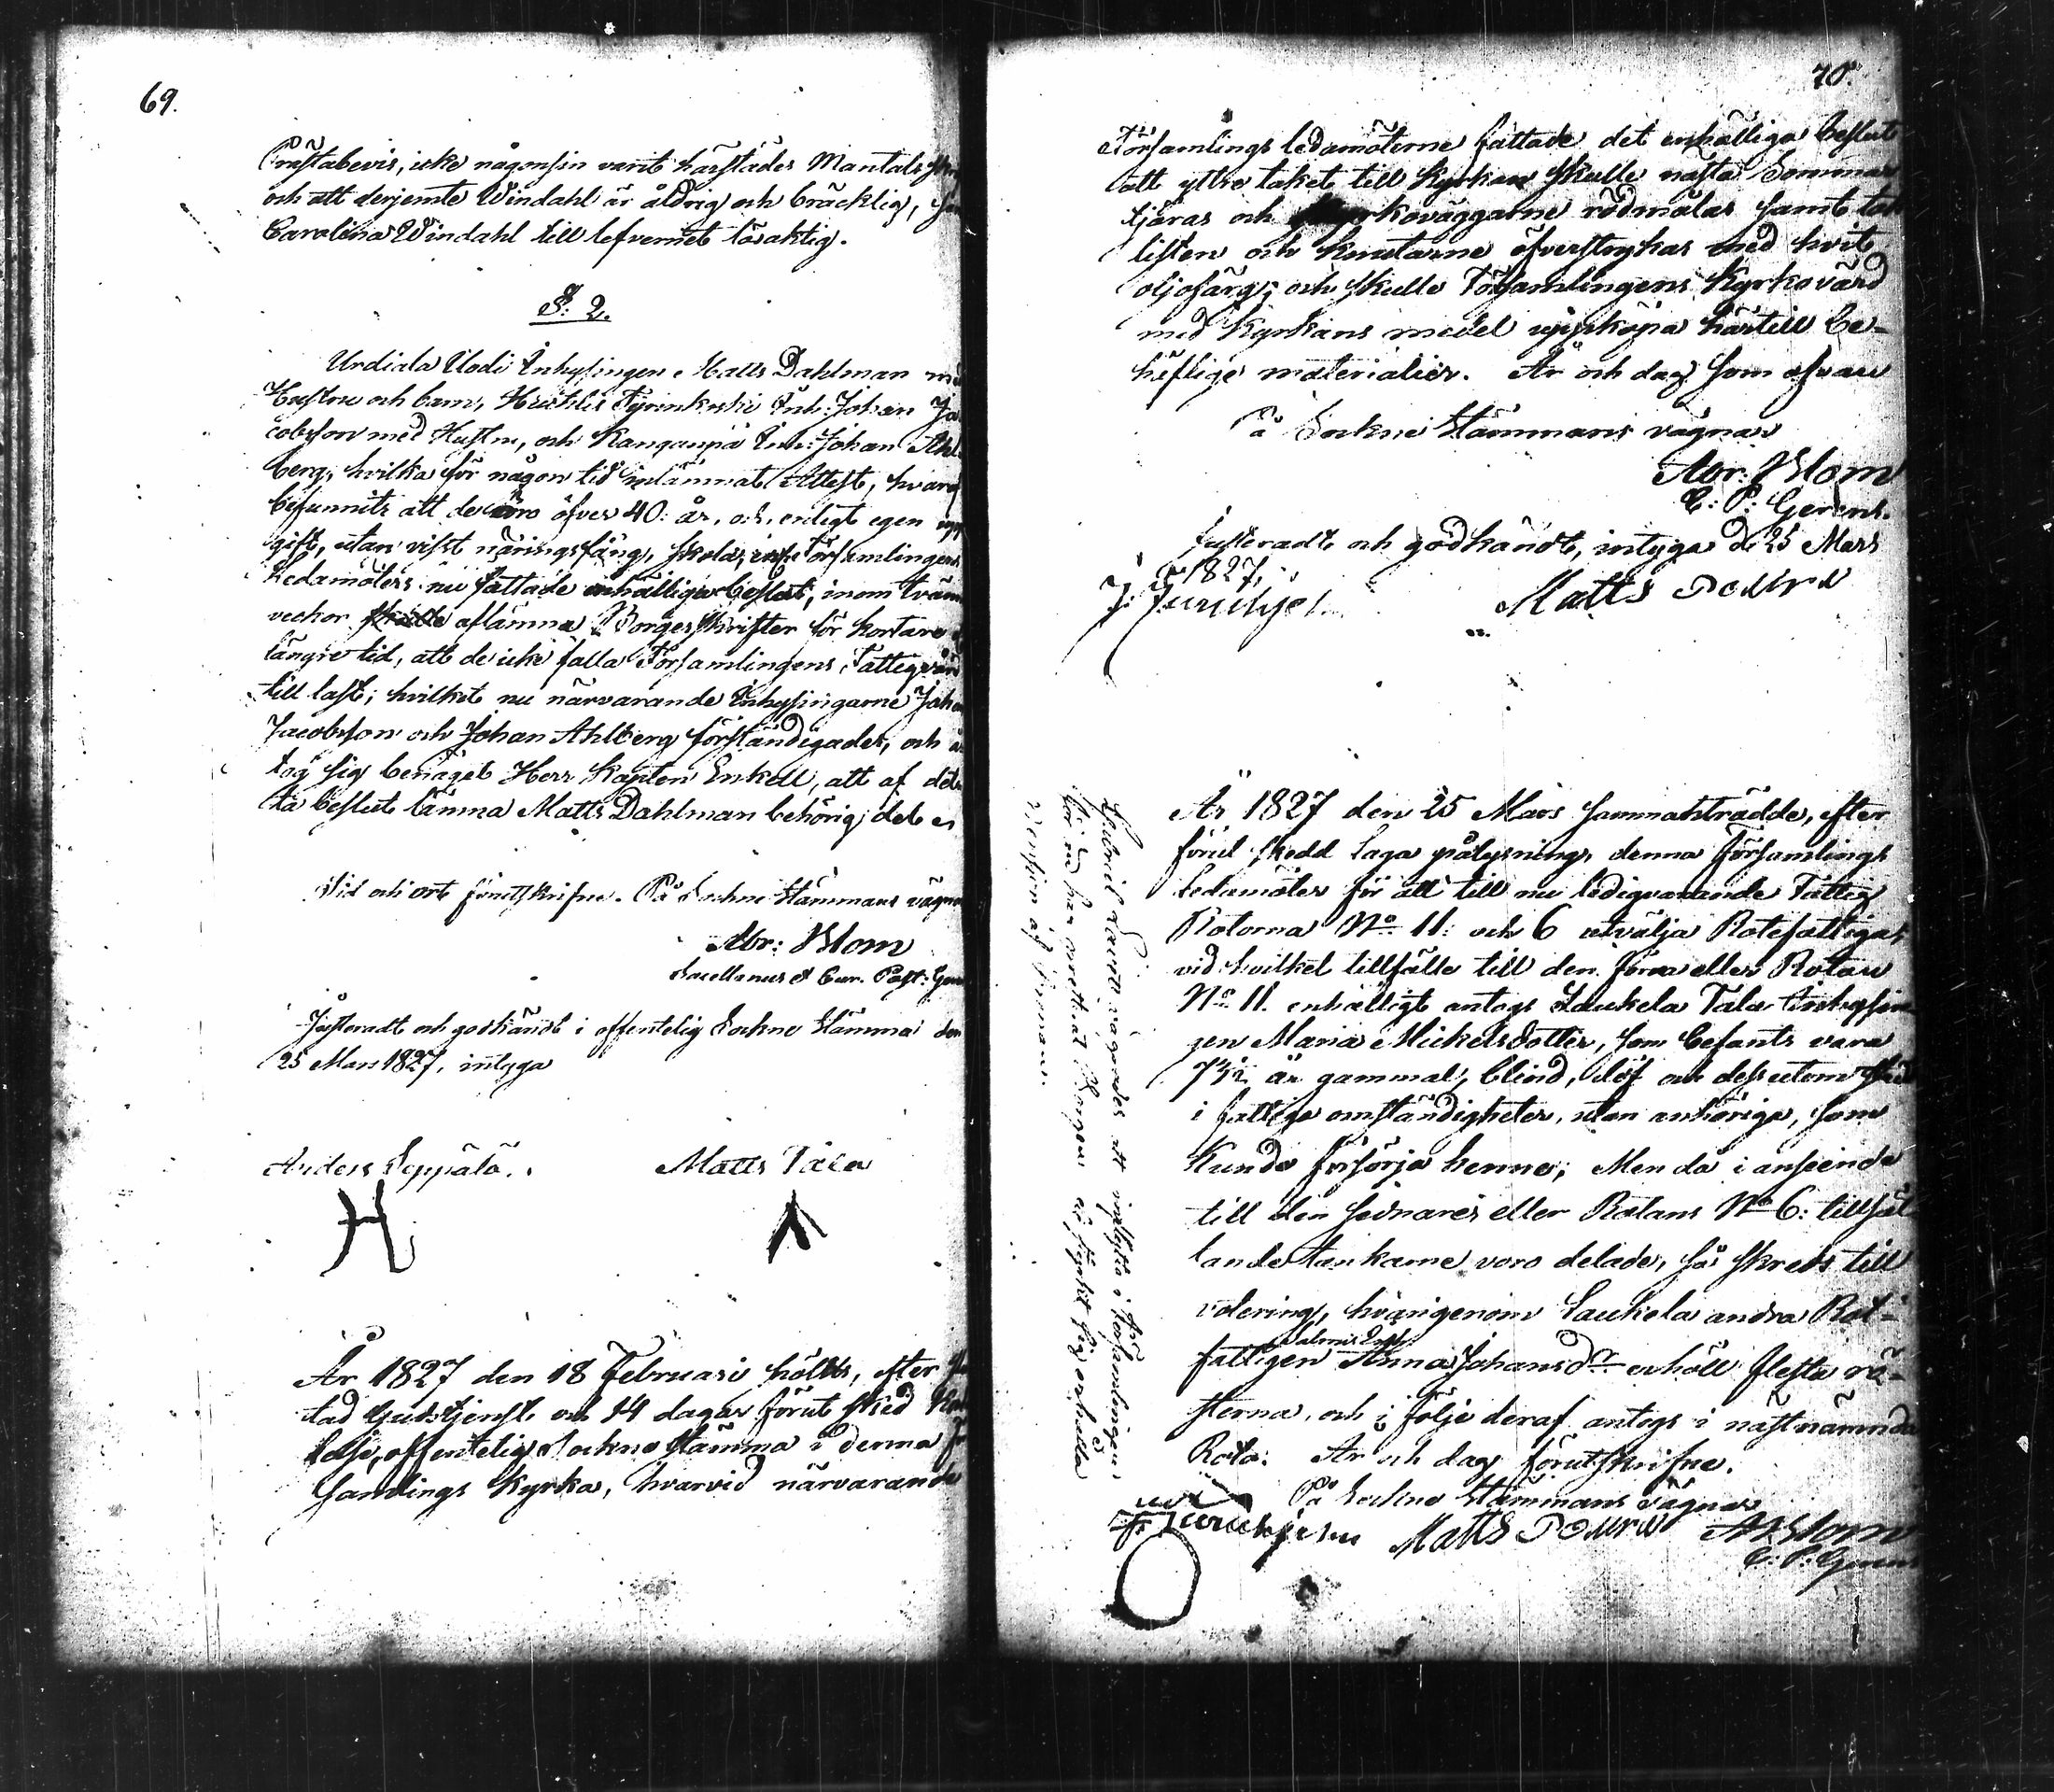 69.
Prästabevis, icke någonsin varit härstädes Mantals
och att derjemte Windahl är åldrig och bräcklig,
Carolina Windahl till lefvernet lösaktig.
§: 2.
Urdiala Uodi Inhysingen Matts Dahlman
Hustru och barn, Huhtis Inh: Johan Ja
cobsson med Hustru, och Kanganpä Inh: Johan Ahl
berg, hvilka för någon tid inlämnat Attest, hvaraf
befunnits att de äro öfver 40: år, och, enligt egen upp
gift, utan visst näringsfång, skola, Församlingens
Ledamöters nu fattade enhälliga beslut, inom
veckor aflämna Borgesskrifter för kortare
längre tid, att de icke falla Församlingens Fattigvård
till last; hvilket nu närvarande Inhysingarne Johan
Jacobsson och Johan Ahlberg förständigades, och å
tog sig benäget Herr Kapten Enkell, att af det
ta beslut lämna Matts Dahlman behörig del
Tid och ort förutskrifne. På Sockne Stämmans vägnar
Abr: Blom
Sacellanus & Cur. Past: Ger
Justeradt och godkändt i offentelig Sockne Stämma den
25 Mars 1827, intyga
Anders Seppälä. Matts Tala
H
År 1827 den 18 Februari hölts, efter
tad Gudstjenst och 14 dagar förut sked
lelse, offentelig Sockne Stämma i denna För
samlings Kyrka, hvarvid närvarande
70.
Församlings ledamöterne fattade det enhälliga beslut
att yttre taket till Kyrkan skulle nästa Sommar
tjäras och Kyrkoväggarne rödmålas samt tak
listen och knutarne öfverstrykas med hvit
oljofärg; och skulle Församlingens Kyrkovärd
med Kyrkans medel uppköpa härtill be-
höflige materialier. År och dag som ofvan
På Sockne Stämmans vägnar
Abr: Blom
C: P: Gerens.
Justeradt och godkändt, intyga d. 25 Mars
1827,
Matts
År 1827 den 25 Mars sammanträdde, efter
förut skedd Laga pålysning, denna Församlings
Ledamöter för att till nu ledigvarande Fattig
Rotorna No 11: och 6 utvälja Rotefattiga;
vid hvilket tillfälle till den förra eller Rotan
No 11. enhälligt antogs Laukela Tala Inhysin
gen Maria Mickelsdotter, som befants vara
73½ år gammal, blind, döf och dessutom
i fattiga omständigheter, utan anhöriga, som
kunde försörja henne; Men då i anseende
till den sednares eller Rotans No 6: tillfal
lande tankarne voro delade, så skreds till
votering, hvarigenom Laukela andra Rot-
fattigen Anna Johansdr erhöll flesta rö-
sterna, och i följe deraf antogs i nästnämnda
Rota. År och dag förutskrifne.
På Sockne Stämmans vägnar
Matts ABlom
C: P: Gerens
vägrades att inflytta i Församlingen